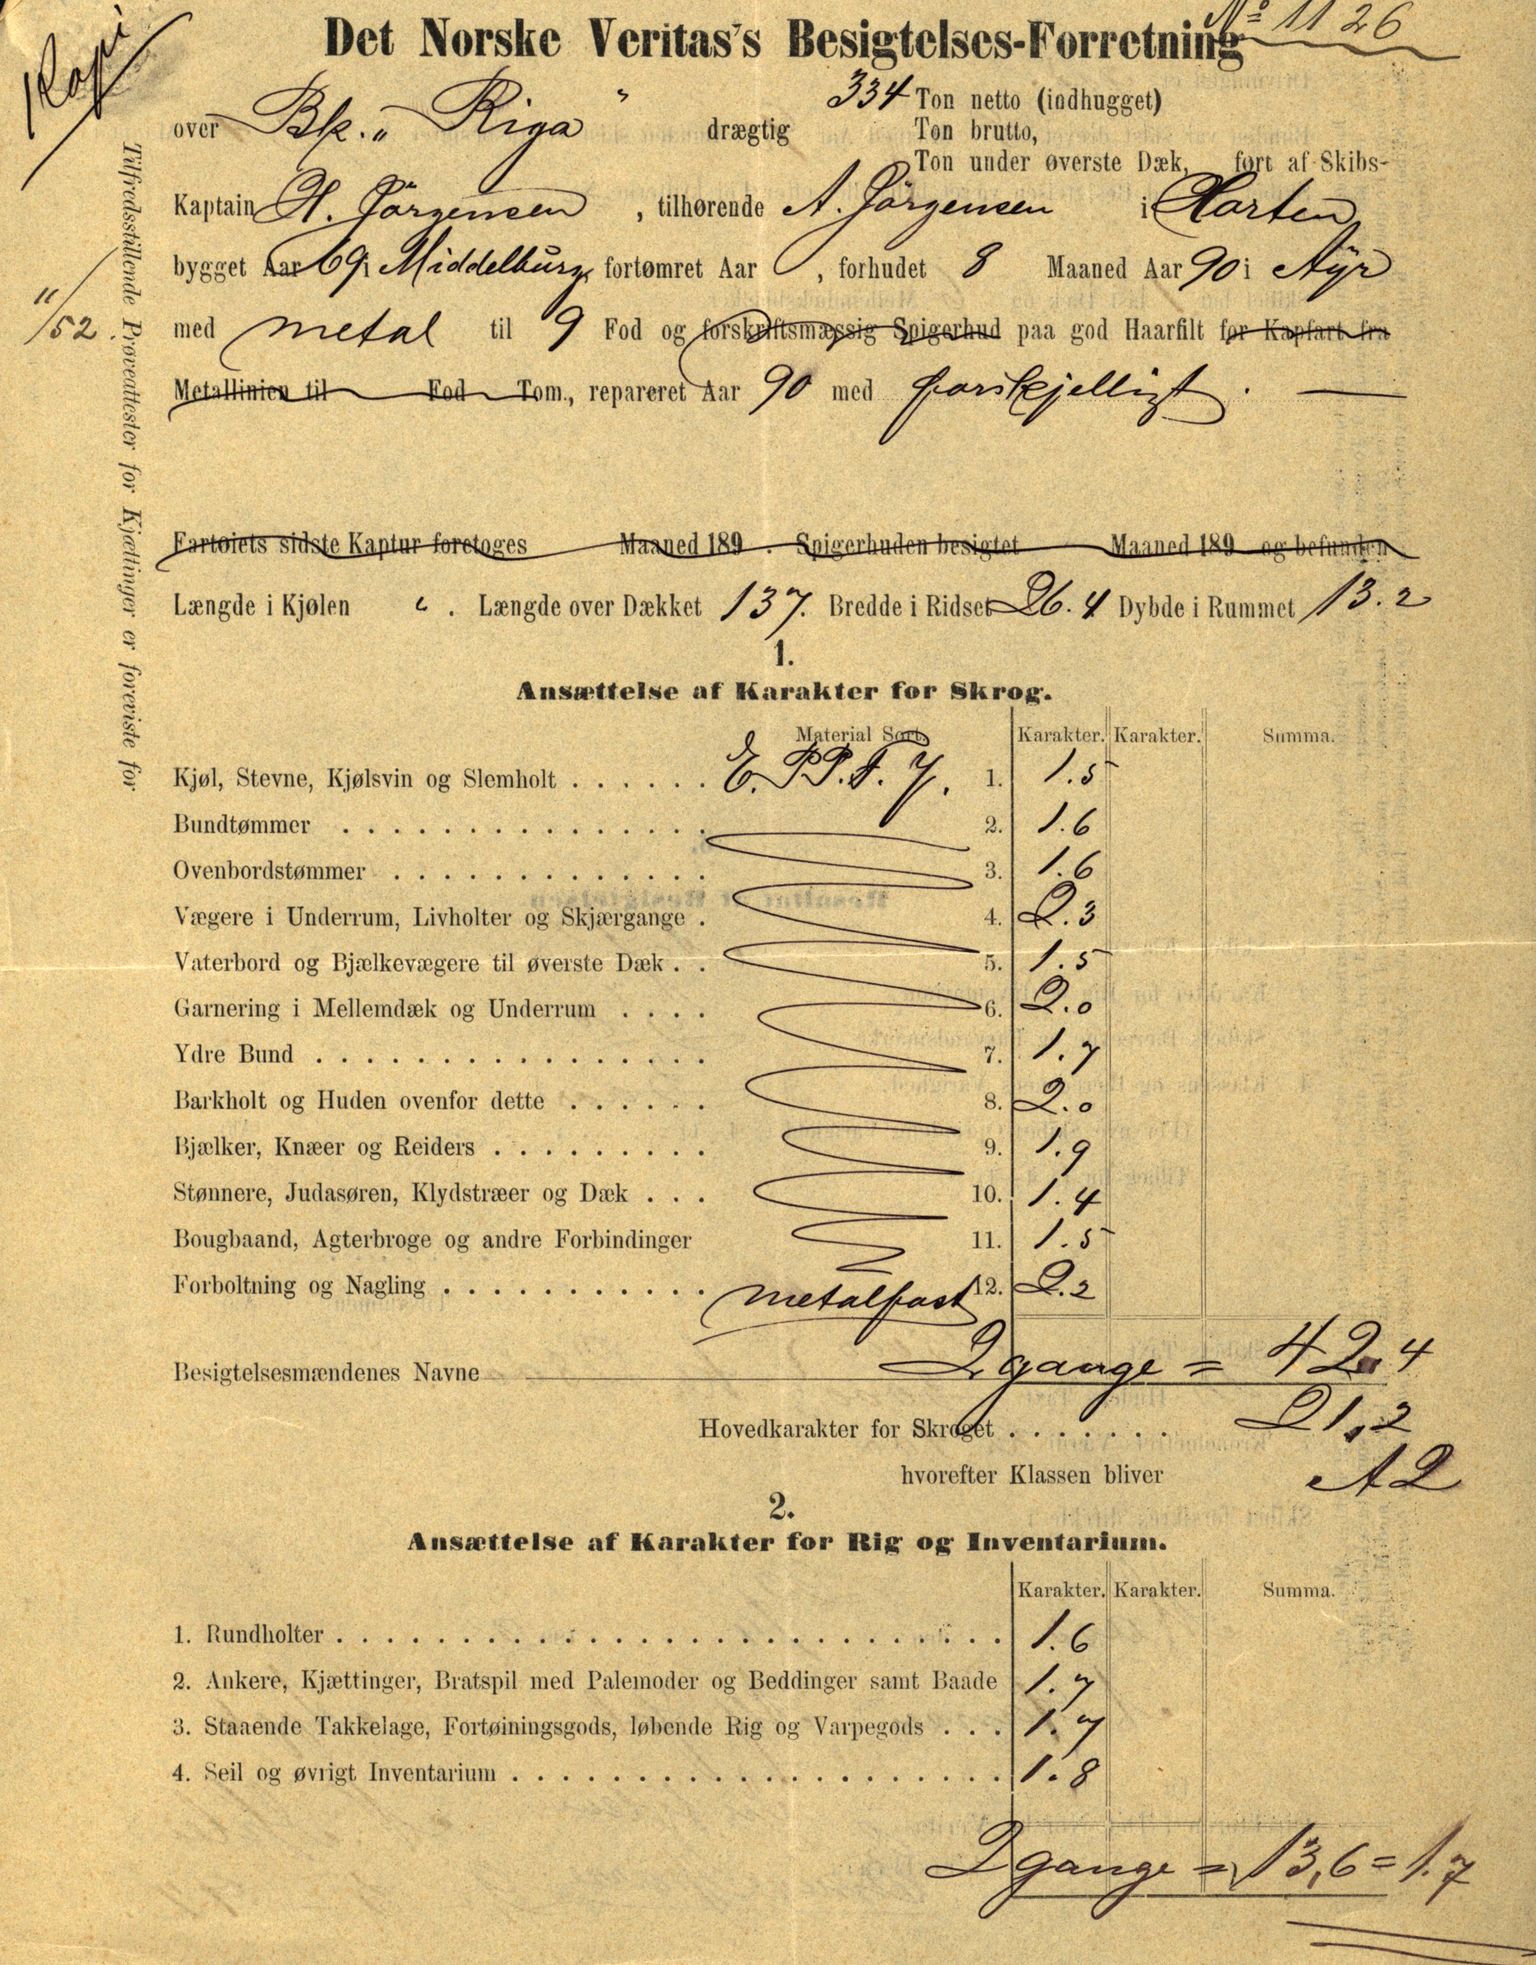 Kopi
Det Norske Veritas's Besigtelses-Forretning No 1126
334 Ton netto (indhugget)
over Bk. „Riga" drægtig Ton brutto,
Ton under øverste Dæk, ført af Skibs-
Kaptain H. Jörgensen, tilhørende A. Jörgensen i Horten
bygget Aar 69 i Middelburg, fortømret Aar , forhudet 8 Maaned Aar 90 i Ayr
11/52.
med metal til 9 Fod og forskriftsmæssig Spigerhud paa god Haarfilt for Kapfart fra
Metallinien til Fod Tom., repareret Aar 90 med forskjelligt.
Fartøiets sidste Kaptur foretoges Maaned 189 . Spigerhuden besigtet Maaned 189 og befunden
Længde i Kjølen " . Længde over Dækket 137. Bredde i Ridset 26.4 Dybde i Rummet 13.2
Tilfredsstillende Prøveattester for Kjættinger er foreviste for
1.
Ansættelse af Karakter for Skrog.
Material Sort. Karakter. Karakter. Summa.
Kjøl, Stevne, Kjølsvin og Slemholt . . . . . . E. PP. F. 7. 1. 1.5
Bundtømmer . . . . . . . . . . . . . . . 2. 1.6
Ovenbordstømmer . . . . . . . . . . . . . 3. 1.6
Vægere i Underrum, Livholter og Skjærgange . 4. 2.3
Vaterbord og Bjælkevægere til øverste Dæk . . 5. 1.5
Garnering i Mellemdæk og Underrum . . . . 6. 2.0
Ydre Bund . . . . . . . . . . . . . . . . 7. 1.7
Barkholt og Huden ovenfor dette . . . . . . 8. 2.0
Bjælker, Knæer og Reiders . . . . . . . . . 9. 1.9
Stønnere, Judasøren, Klydstræer og Dæk . . . 10. 1.4
Bougbaand, Agterbroge og andre Forbindinger 11. 1.5
Forboltning og Nagling . . . . . . . . . . . metalfast 12. 2.2
2 gange = 42.4
Besigtelsesmændenes Navne
Hovedkarakter for Skroget . . . . . . . 21,2
hvorefter Klassen bliver A2
2.
Ansættelse af Karakter for Rig og Inventarium.
Karakter. Karakter. Summa.
1. Rundholter . . . . . . . . . . . . . . . . . . . . . . . . . . 1.6
2. Ankere, Kjættinger, Bratspil med Palemoder og Beddinger samt Baade 1.7
3. Staaende Takkelage, Fortøiningsgods, løbende Rig og Varpegods . . . 1.7
4. Seil og øvrigt Inventarium . . . . . . . . . . . . . . . . . . . 1.8
2 gange = 13,6 = 1.7